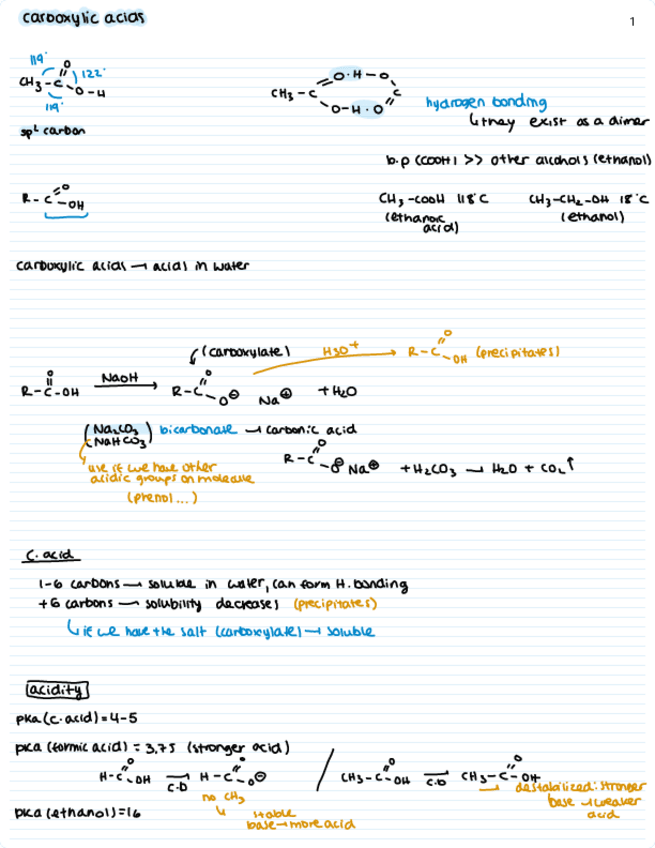 carboxylic acids
1
119°
O
122°
CH3-C
O-H
119°
sp² carbon
O·H-O
CH3-C
C
O-H·O
hydrogen bonding
↳ they exist as a dimer
b.p (COOH) >> other alcohols (ethanol)
R-C
O
OH
CH3-COOH 118°C
(ethanoic
acid)
CH3-CH2-OH 18°C
(ethanol)
carboxylic acids → acids in water
(carboxylate)
H3O+
R-C
O
OH
(precipitates)
R-C-OH
O
NaOH
R-C
O
O⊖
Na⊕
+H2O
(Na2CO3
NaHCO3)
bicarbonate → carbonic acid
use if we have other
acidic groups on molecule
(phenol...)
R-C
O
O⊖ Na⊕
+H2CO3 → H2O + CO2↑
C. acid
1-6 carbons → soluble in water, can form H. bonding
+6 carbons → solubility decreases (precipitates)
↳ if we have the salt (carboxylate) → soluble
acidity
pKa (c. acid) = 4-5
pKa (formic acid) = 3,75 (stronger acid)
H-C
O
OH
C.D
H-C
O
O⊖
/
CH3-C
O
OH
C.D
CH3-C
O
OH
no CH3
↳ stable
base → more acid
destabilized: stronger
base → weaker
acid
pKa (ethanol) = 16